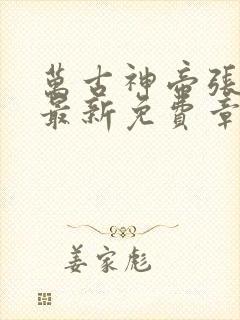 萬古神帝張
最新免費章
姜家彪